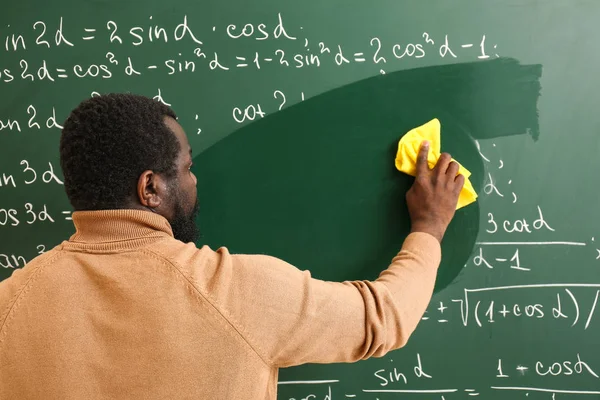 in 2α = 2 sinα · cosα ;
os 2α = cos²α - sin²α = 1-2 sin²α = 2 cos²α - 1 ;
an 2α cot 2 ;
in 3α α ;
os 3α = 3 cotα
an α - 1
= ± √(1+cosα)/
sinα = 1 + cosα